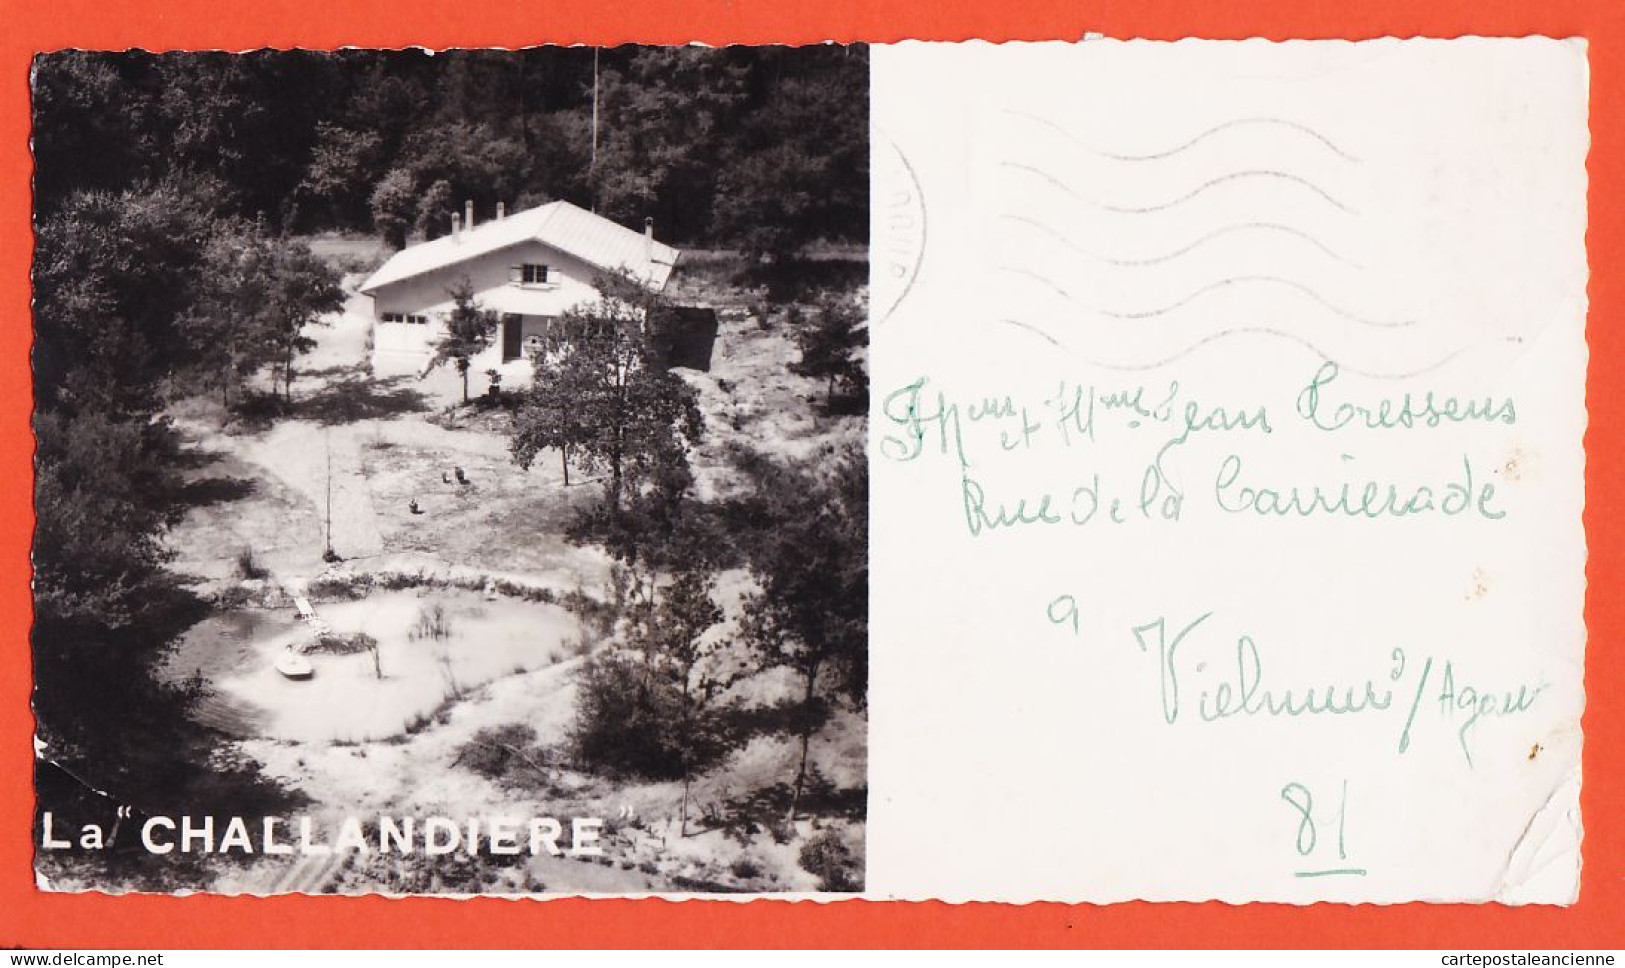 La "CHALLANDIERE"
et Mme Jean Cressens
Rue de la Carrierade
a
Vielmur s/Agout
81
delcampe.net
cartepostaleancienne